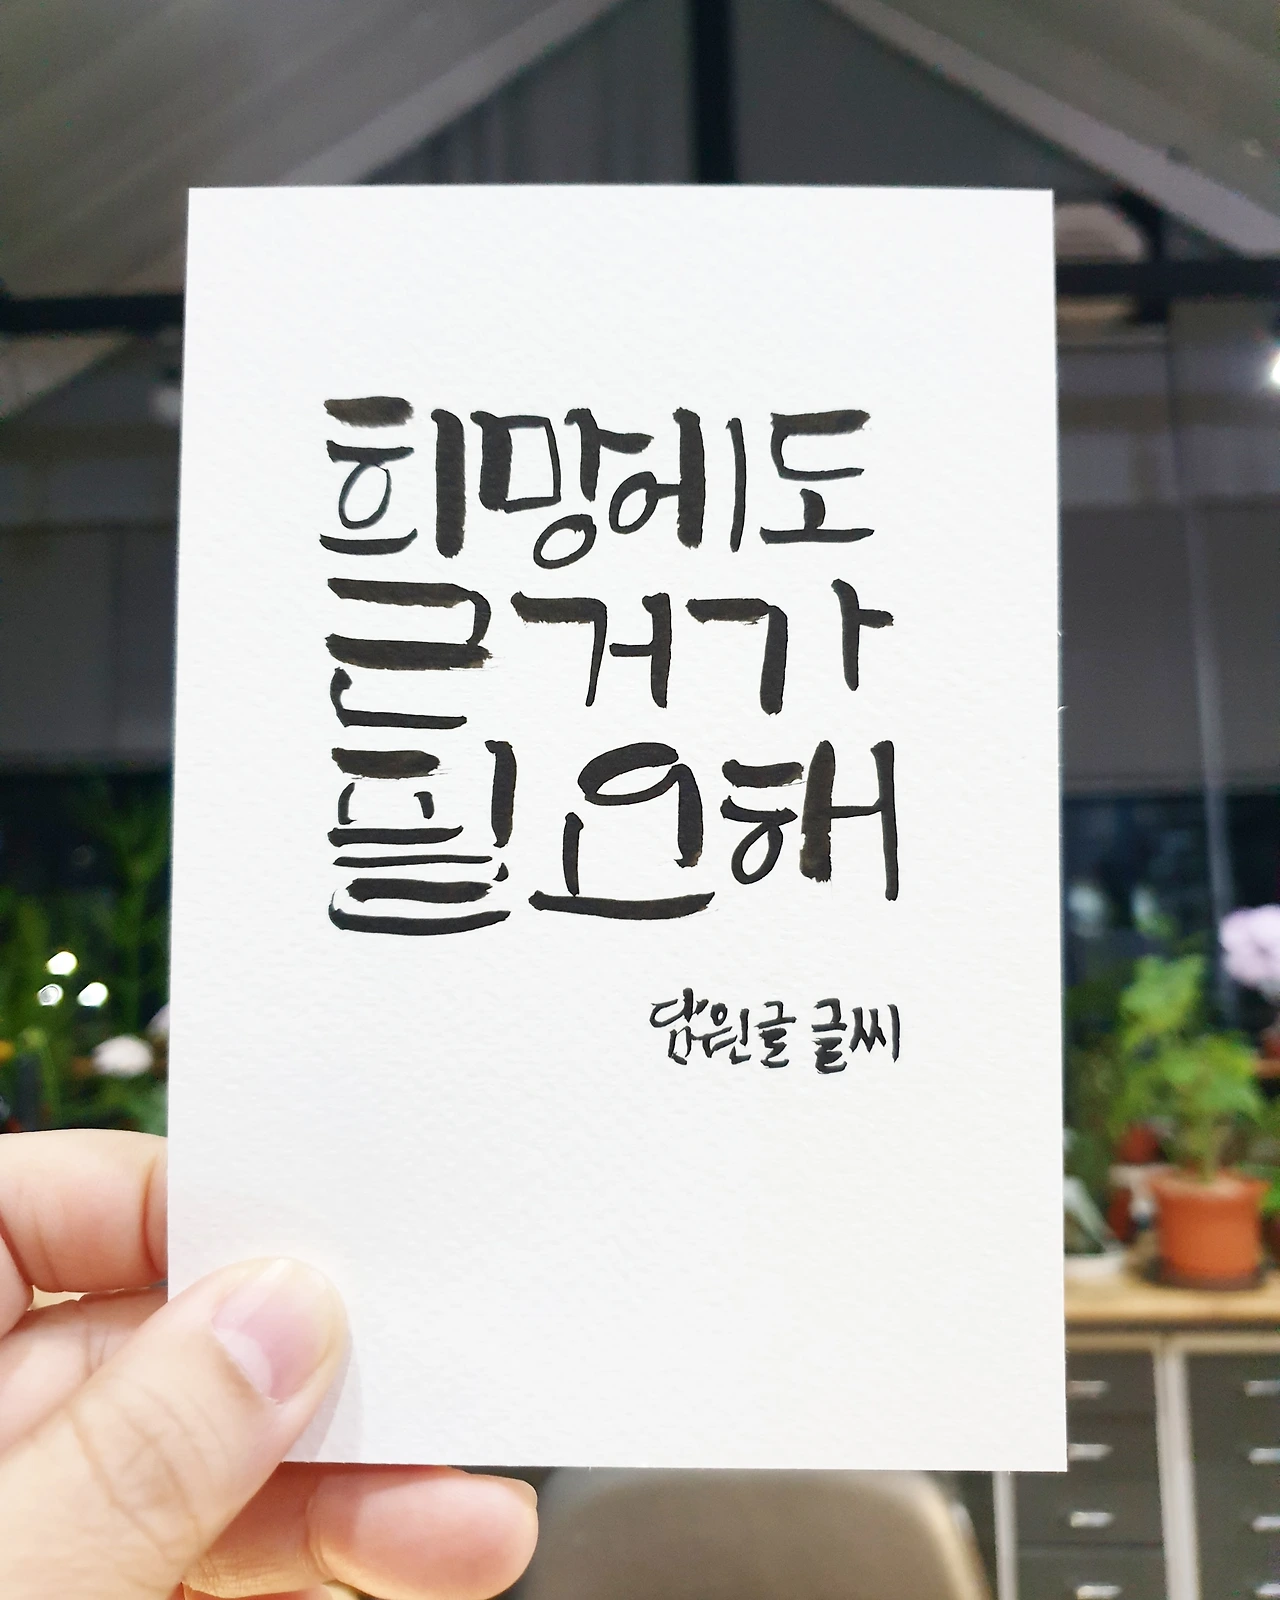 희망에도
근거가
필요해
담원글 글씨